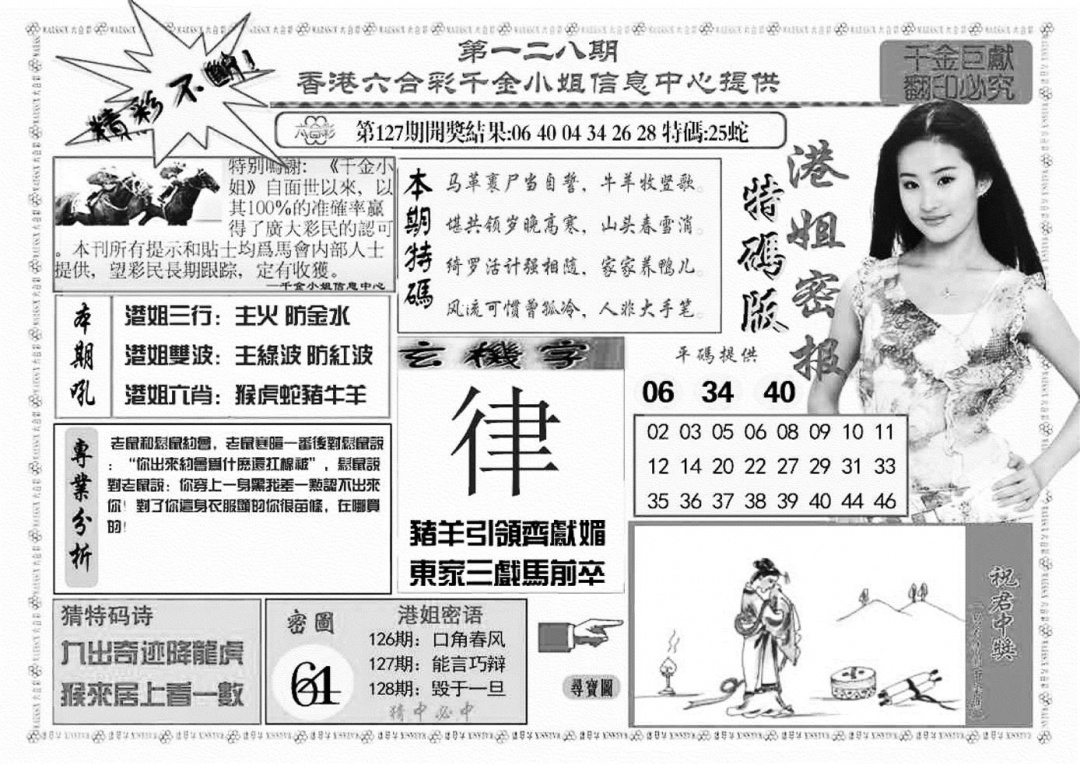 第一二八期
香港六合彩千金小姐信息中心提供
精彩不斷!
千金巨獻
翻印必究
六合彩
第127期開獎結果:06 40 04 34 26 28 特碼:25蛇
特别鳴謝:《千金小
姐》自面世以來，以
其100%的准確率贏
得了廣大彩民的認可
。本刊所有提示和貼士均爲馬會内部人士
提供，望彩民長期跟踪，定有收獲。
—千金小姐信息中心
本期特碼
马革裹尸当自誓，牛羊牧竖歌。
堪共领岁晚高寒，山头春雪消。
绮罗活计强相随，家家养鸭儿。
风流可惯曾孤冷，人非大手笔。
港姐密报
特碼版
本期吼
港姐三行：主火 防金水
港姐雙波：主綠波 防紅波
港姐六肖：猴虎蛇豬牛羊
玄機字
律
豬羊引領齊獻媚
東家三戲馬前卒
平碼提供
06 34 40
02 03 05 06 08 09 10 11
12 14 20 22 27 29 31 33
35 36 37 38 39 40 44 46
專業分析
老鼠和鬆鼠約會，老鼠寒暄一番後對鬆鼠說
：“你出來約會爲什麽還扛棉被”，鬆鼠說
對老鼠說：你穿上一身黑我差一點認不出來
你！對了你這身衣服顯的你很苗條，在哪買
的！
猜特码诗
九出奇迹降龍虎
猴來居上看一數
密圖
61
港姐密语
126期：口角春风
127期：能言巧辯
128期：毁于一旦
猜中必中
尋寶圖
祝君中獎